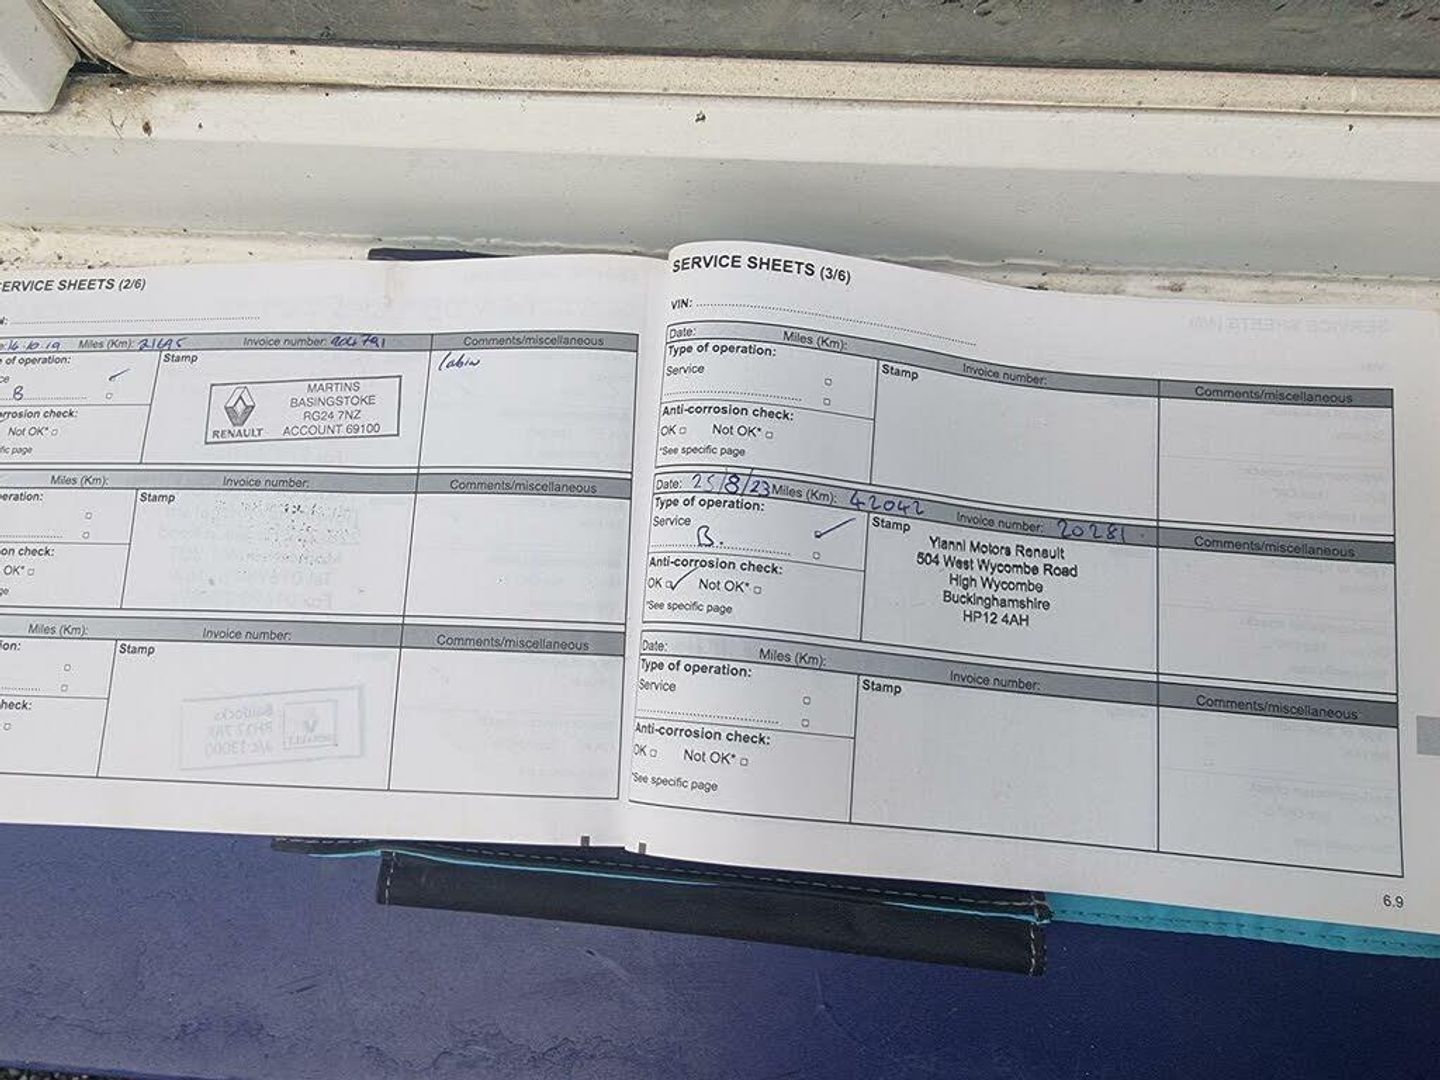 ERVICE SHEETS (2/6)
16.10.19 Miles (Km): 21695 Invoice number: 904791 Comments/miscellaneous
of operation: Stamp Cabin
ce
B
MARTINS
BASINGSTOKE
RG24 7NZ
RENAULT ACCOUNT 69100
rrosion check:
Not OK*
fic page
Miles (Km): Invoice number: Comments/miscellaneous
eration: Stamp
on check:
OK*
Miles (Km): Invoice number: Comments/miscellaneous
ion: Stamp
heck:
SERVICE SHEETS (3/6)
VIN:
Date: Miles (Km): Invoice number: Comments/miscellaneous
Type of operation: Stamp
Service
Anti-corrosion check:
OK Not OK*
*See specific page
Date: 25/8/23 Miles (Km): 42042 Invoice number: 20281. Comments/miscellaneous
Type of operation: Stamp
Service
B.
Yianni Motors Renault
504 West Wycombe Road
High Wycombe
Buckinghamshire
HP12 4AH
Anti-corrosion check:
OK Not OK*
*See specific page
Date: Miles (Km): Invoice number: Comments/miscellaneous
Type of operation: Stamp
Service
Anti-corrosion check:
OK Not OK*
*See specific page
6.9